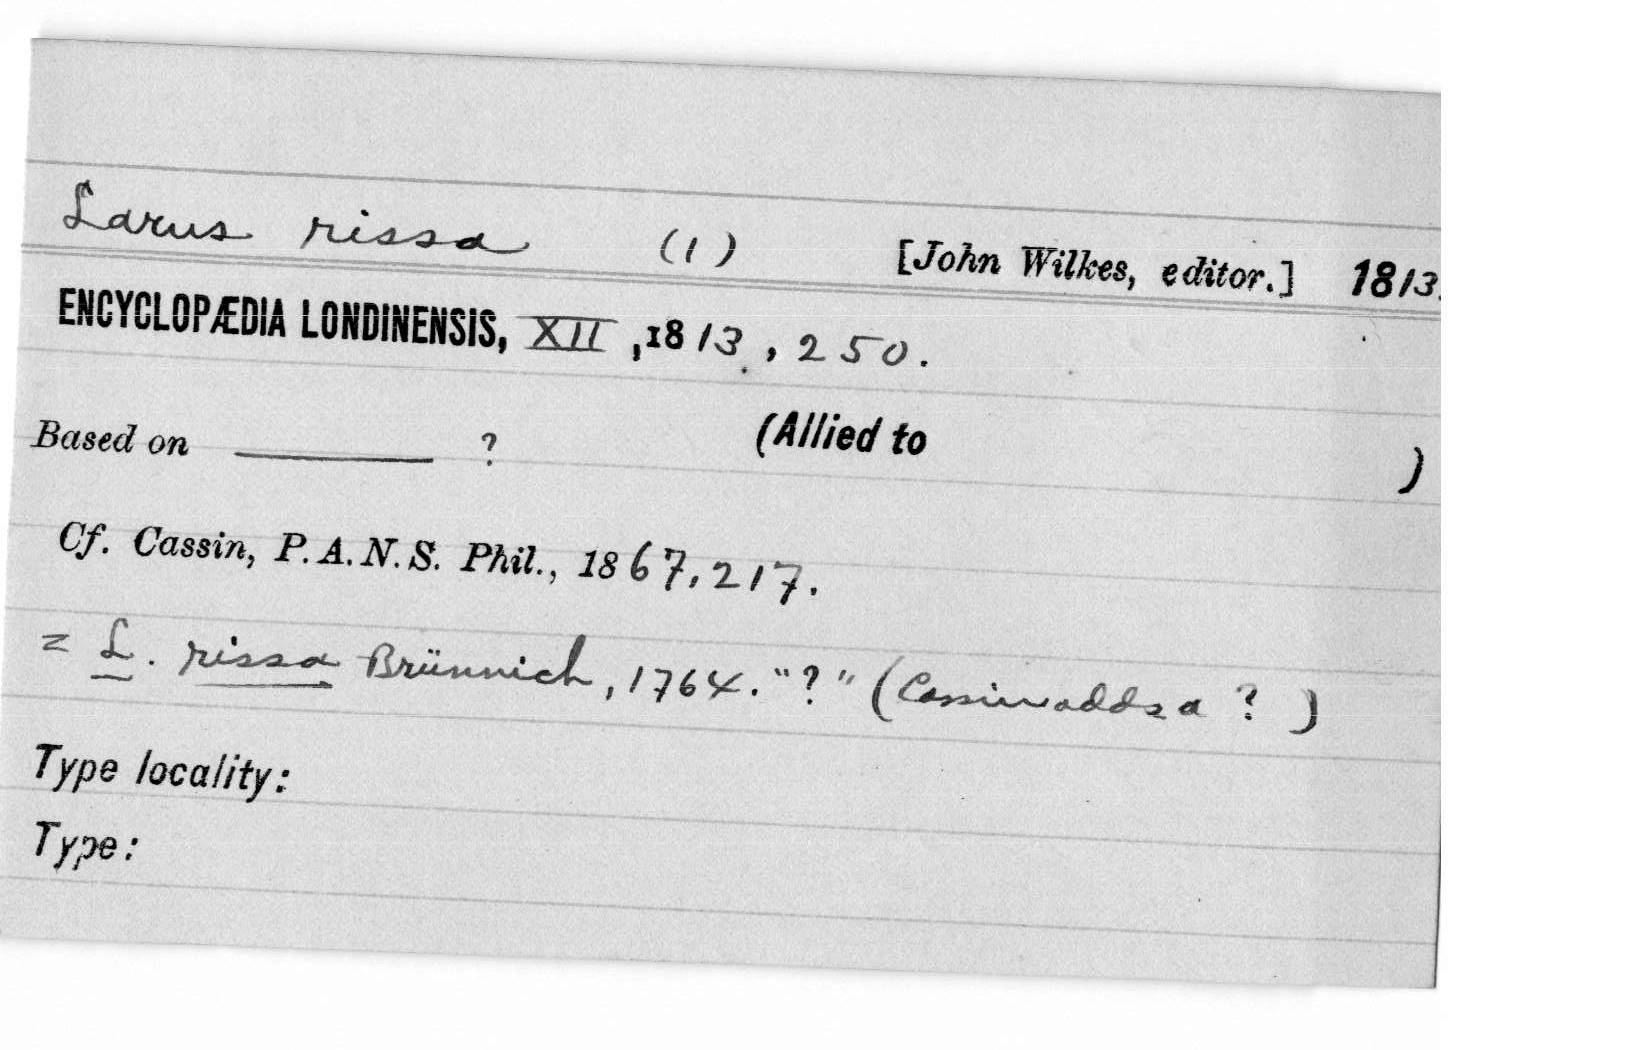 Larus rissa (1) [John Wilkes, editor.] 1813.
ENCYCLOPÆDIA LONDINENSIS, XII, 1813, 250.
Based on ______ ? (Allied to )
Cf. Cassin, P.A.N.S. Phil., 1867, 217.
= L. rissa Brünnich, 1764. "?" (Cassin adds a ? )
Type locality:
Type: